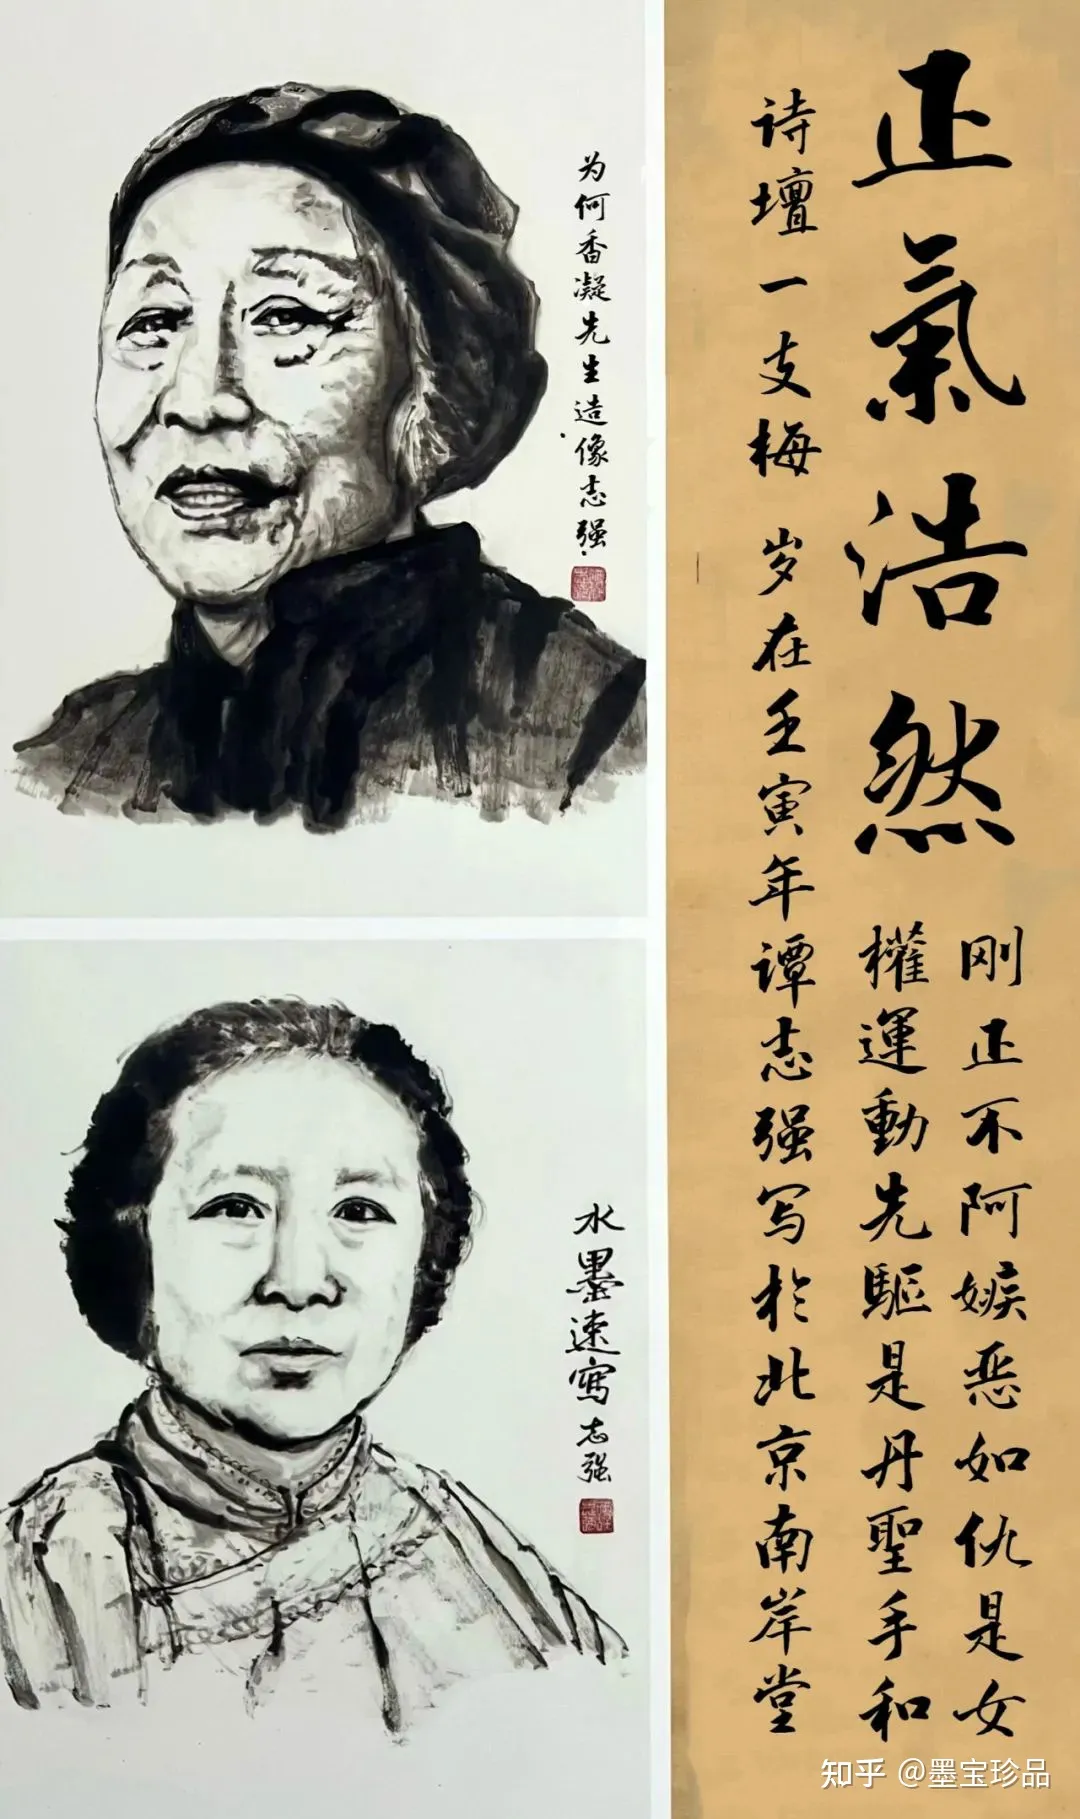 正氣浩然
刚正不阿嫉恶如仇是女
權運動先驅是丹聖手和
诗壇一支梅 岁在壬寅年谭志强写於北京南岸堂
为何香凝先生造像志强
水墨速寫志强
知乎 @墨宝珍品